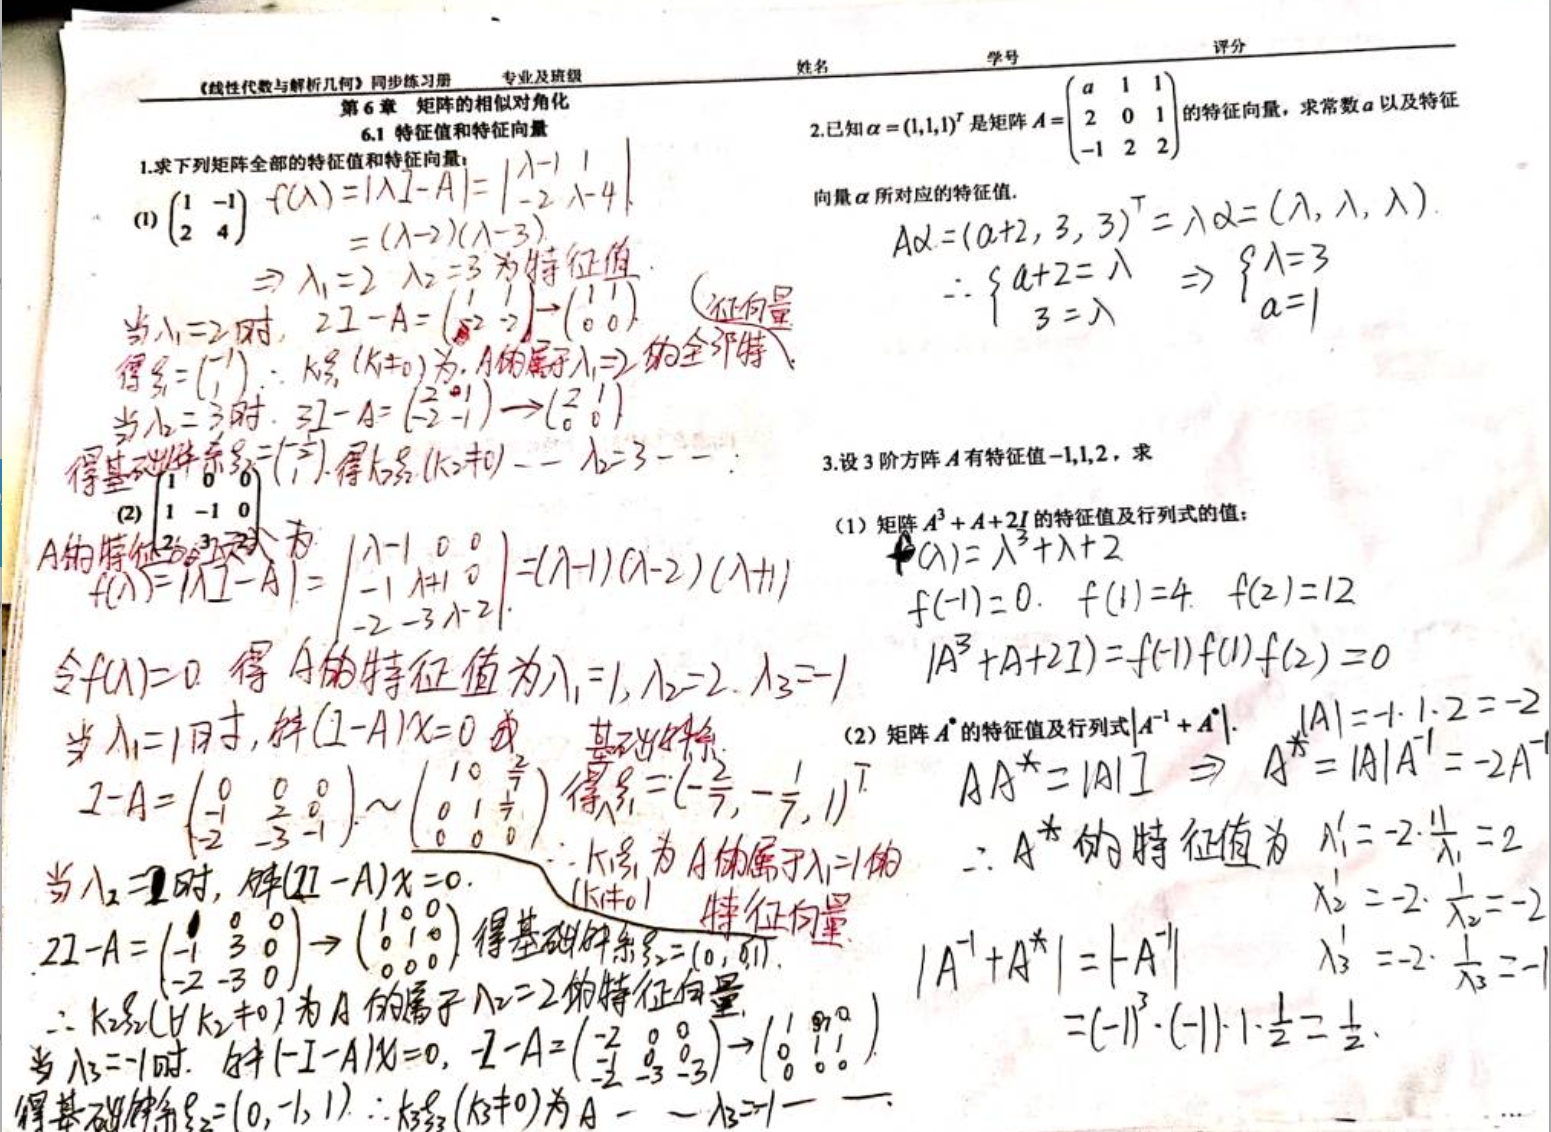 《线性代数与解析几何》同步练习册 专业及班级 姓名 学号 评分
第 6 章 矩阵的相似对角化
6.1 特征值和特征向量
1.求下列矩阵全部的特征值和特征向量:
(1) (1 -1
2 4)
f(λ)=|λI-A|=|λ-1 1
-2 λ-4|
=(λ-2)(λ-3)
⇒ λ₁=2 λ₂=3 为特征值.
当λ₁=2时, 2I-A=(1 1
-2 -2)→(1 1
0 0)
得ξ₁=(-1
1) ∴ k₁ξ₁(k₁≠0)为A的属于λ₁=2 的全部特征向量
当λ₂=3时. 3I-A=(2 1
-2 -1)→(2 1
0 0)
得基础解系ξ₂=(-1/2
1). 得k₂ξ₂(k₂≠0) -- λ₂=3 -- .
(2) (1 0 0
1 -1 0
2 3 2)
A的特征多项式为
f(λ)=|λI-A|=|λ-1 0 0
-1 λ+1 0
-2 -3 λ-2|=(λ-1)(λ-2)(λ+1)
令f(λ)=0 得 A的特征值为λ₁=1, λ₂=2. λ₃=-1
当λ₁=1时, 解(I-A)x=0 或
I-A=(0 0 0
-1 2 0
-2 -3 -1)~(1 0 2/7
0 1 1/7
0 0 0) 得基础解系ξ₁=(-2/7, -1/7, 1)ᵀ
∴ k₁ξ₁为A的属于λ₁=1的
(k₁≠0) 特征向量
当λ₂=2时, 解(2I-A)x=0.
2I-A=(1 0 0
-1 3 0
-2 -3 0)→(1 0 0
0 1 0
0 0 0) 得基础解系ξ₂=(0, 0,1).
∴ k₂ξ₂(∀k₂≠0)为A的属于λ₂=2的特征向量.
当λ₃=-1时. 解(-I-A)x=0, -I-A=(-2 0 0
-1 0 0
-2 -3 -3)→(1 0 0
0 1 1
0 0 0)
得基础解系ξ₂=(0, -1, 1) ∴ k₃ξ₃(k₃≠0)为A - - λ₃=-1 - -.
2.已知α=(1,1,1)ᵀ是矩阵A=(a 1 1
2 0 1
-1 2 2)的特征向量，求常数a以及特征
向量α所对应的特征值.
Aα=(a+2, 3, 3)ᵀ=λα=(λ, λ, λ).
∴ {a+2=λ
3=λ ⇒ {λ=3
a=1
3.设 3 阶方阵A有特征值-1,1,2，求
（1）矩阵A³+A+2I的特征值及行列式的值;
f(λ)=λ³+λ+2
f(-1)=0. f(1)=4 f(2)=12
|A³+A+2I|=f(-1)f(1)f(2)=0
（2）矩阵A*的特征值及行列式|A⁻¹+A*|. |A|=-1·1·2=-2
AA*=|A|I ⇒ A*=|A|A⁻¹=-2A⁻¹
∴ A*的特征值为 λ₁'=-2·1/λ₁=2
λ₂'=-2·1/λ₂=-2
λ₃'=-2·1/λ₃=-1
|A⁻¹+A*|=|-A⁻¹|
=(-1)³·(-1)·1·1/2=1/2.